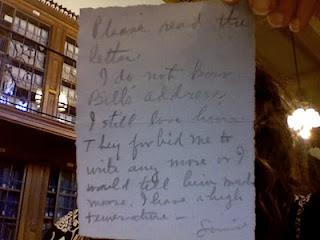 Please read this
letter.
I do not know
Bill's address
I still love him.
They forbid me to
write any more or I
would tell him much
more. I have a high
temperature —
Louise